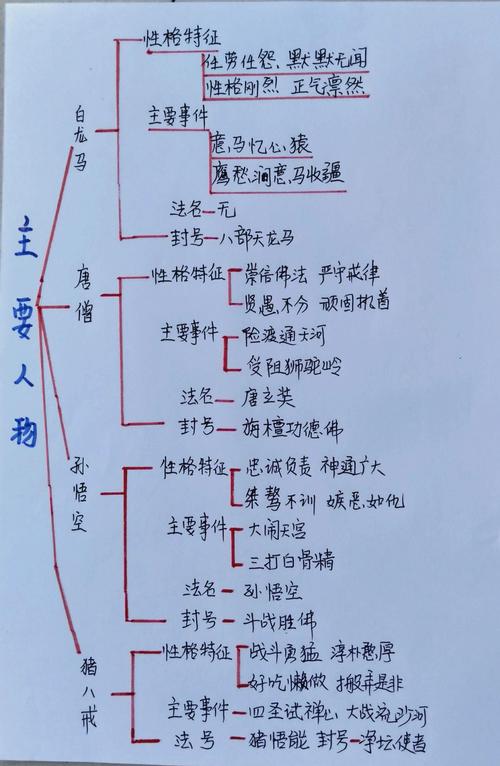 主要人物
白龙马
性格特征
任劳任怨、默默无闻
性格刚烈 正气禀然
主要事件
意马忆心猿
鹰愁涧意马收疆
法名—无
封号—八部天龙马
唐僧
性格特征
崇信佛法 严守戒律
贤愚不分 顽固执着
主要事件
险渡通天河
受阻狮驼岭
法名—唐玄奘
封号—旃檀功德佛
孙悟空
性格特征
忠诚负责 神通广大
桀骜不训 嫉恶如仇
主要事件
大闹天宫
三打白骨精
法名—孙悟空
封号—斗战胜佛
猪八戒
性格特征
战斗勇猛 淳朴憨厚
好吃懒做 搬弄是非
主要事件—四圣试禅心 大战流沙河
法号—猪悟能 封号—净坛使者